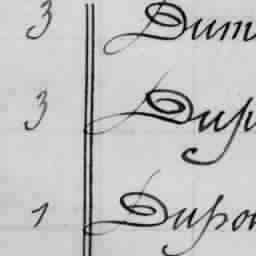 3 Dum
3 Dup
1 Dupon